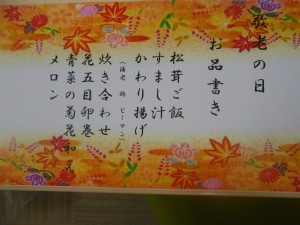 敬老の日
お品書き
松茸ご飯
すまし汁
かわり揚げ
(海老 鮪 ピーマン)
炊き合わせ
花五目卵巻
青菜の菊花和え
メロン